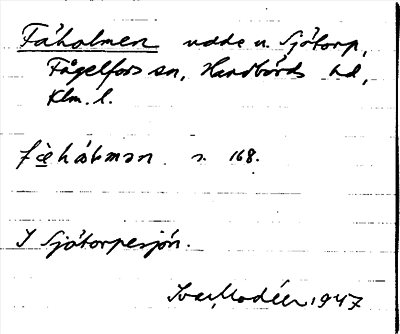 Fåholmen udde n. Sjötorp,
Fågelfors sn, Handbörds hd,
Klm. l.
s. 168.
I Sjötorpesjön.
Ivar Modéer 1947